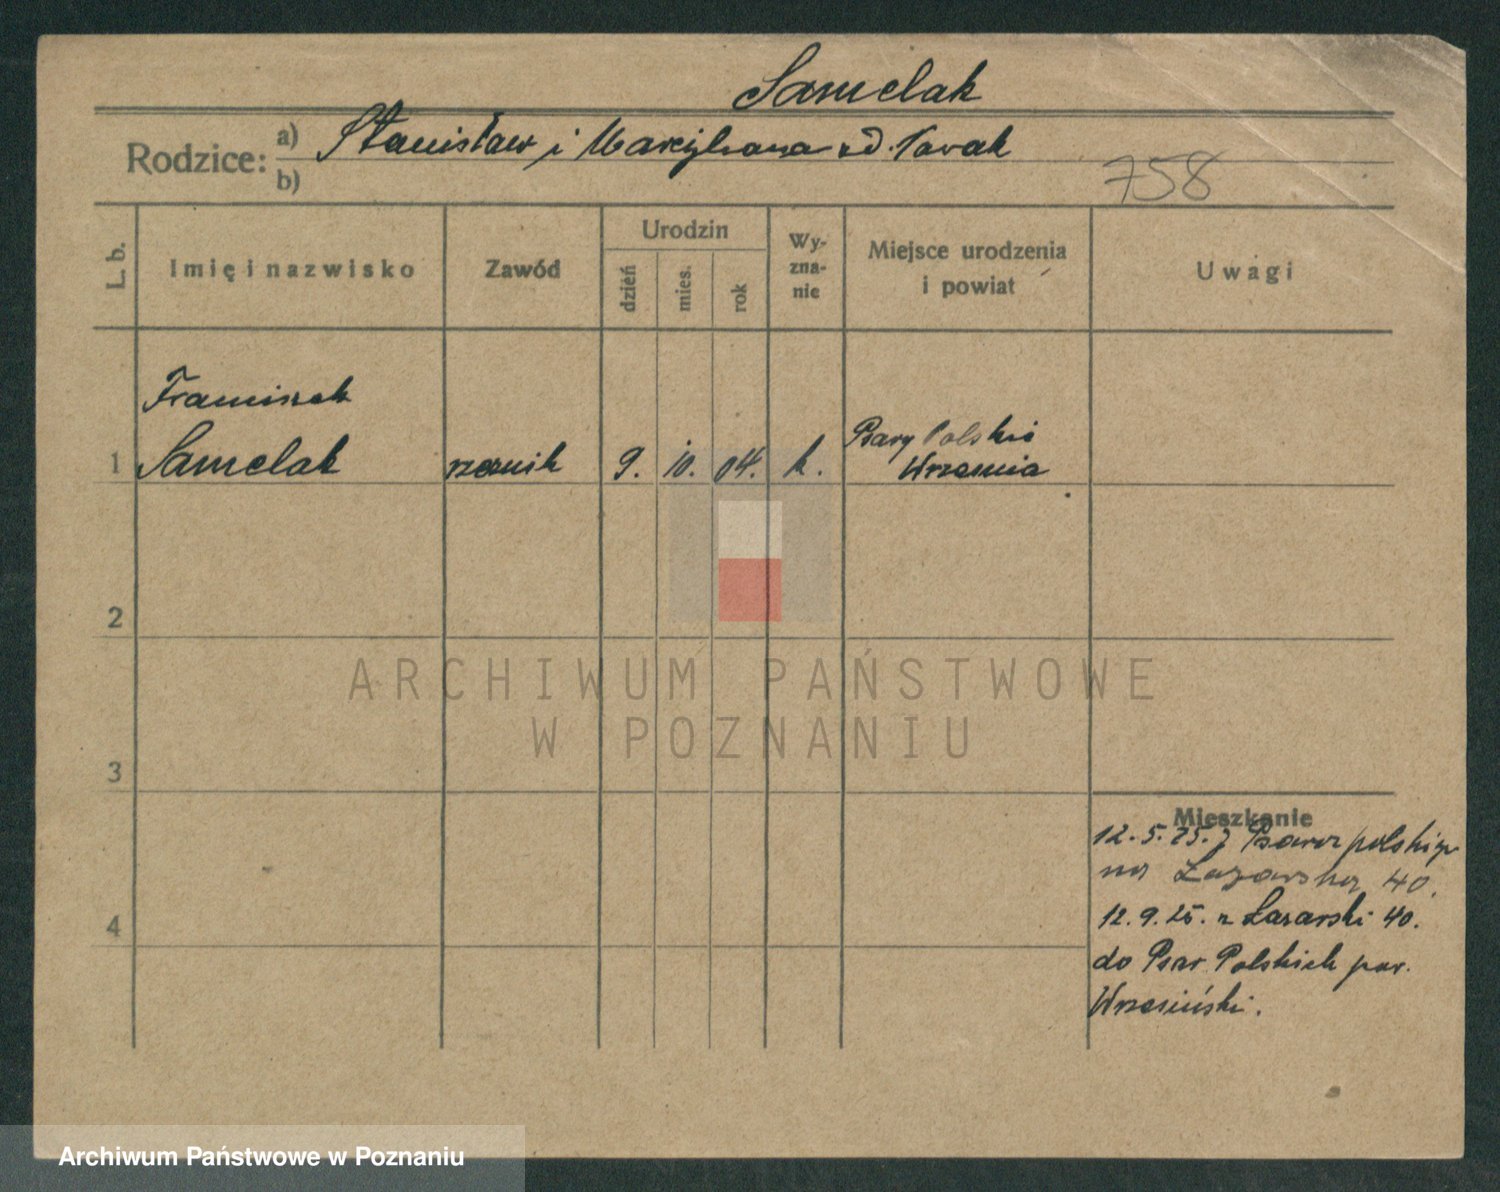 Samelak
Rodzice:
a) Stanisław i Marcyjanna zd. Nowak
b)
758
L. b.
Imię i nazwisko
Zawód
Urodzin
dzień
mies.
rok
Wy-
zna-
nie
Miejsce urodzenia
i powiat
Uwagi
Franciszek
1 Samelak rzeźnik 9. 10. 04. k. Psary Polskie
Września
2
3
4
ARCHIWUM PAŃSTWOWE
W POZNANIU
Mieszkanie
12.5.25. z polskich
na Łazarską 40.
12.9.25. z Łazarski 40.
do Psar Polskich pow.
Wrzesiński.
Archiwum Państwowe w Poznaniu